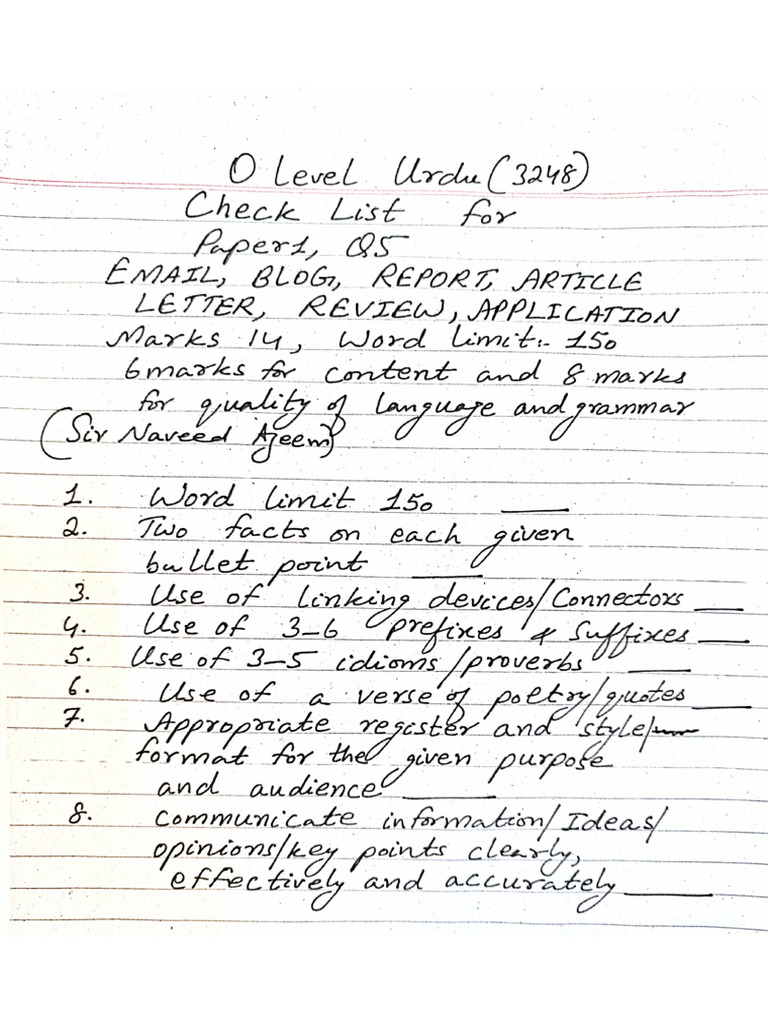 O Level Urdu (3248)
Check List for
Paper1, Q5
EMAIL, BLOG, REPORT, ARTICLE
LETTER, REVIEW, APPLICATION
Marks 14, Word limit:- 150
6marks for content and 8 marks
for quality of language and grammar
(Sir Naveed Azeem)
1. Word limit 150 ____
2. Two facts on each given
bullet point ____
3. Use of linking devices/Connectors ___
4. Use of 3-6 prefixes & Suffixes ___
5. Use of 3-5 idioms/proverbs ____
6. Use of a verse of poetry/quotes ___
7. Appropriate register and style/
format for the given purpose
and audience ____
8. Communicate information/Ideas/
opinions/key points clearly,
effectively and accurately ____